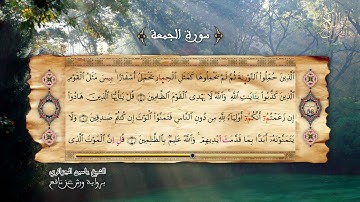 سورة الجمعة
الَّذِينَ حُمِّلُوا التَّوْرِيٰةَ ثُمَّ لَمْ يَحْمِلُوهَا كَمَثَلِ الْحِمِارِ يَحْمِلُ أَسْفَارًا بِيسَ مَثَلُ الْقَوْمِ
الَّذِينَ كَذَّبُوا بِـَٔايَٰتِ اللَّهِ وَاللَّهُ لَا يَهْدِي الْقَوْمَ الظَّٰلِمِينَ قُلْ يَٰأَيُّهَا الَّذِينَ هَادُوا
إِن زَعَمْتُمُ أَنَّكُمُ أَوْلِيَاءُ لِلَّهِ مِن دُونِ النَّاسِ فَتَمَنَّوُا الْمَوْتَ إِن كُنتُمْ صَٰدِقِينَ وَلَا
يَتَمَنَّوْنَهُ أَبَدًا بِمَا قَدَّمَتَ ايْدِيهِمْ وَاللَّهُ عَلِيمٌ بِالظَّٰلِمِينَ قُلِ انَّ الْمَوْتَ الَّذِي
الشيخ ياسين الجزائري
برواية ورش عن نافع